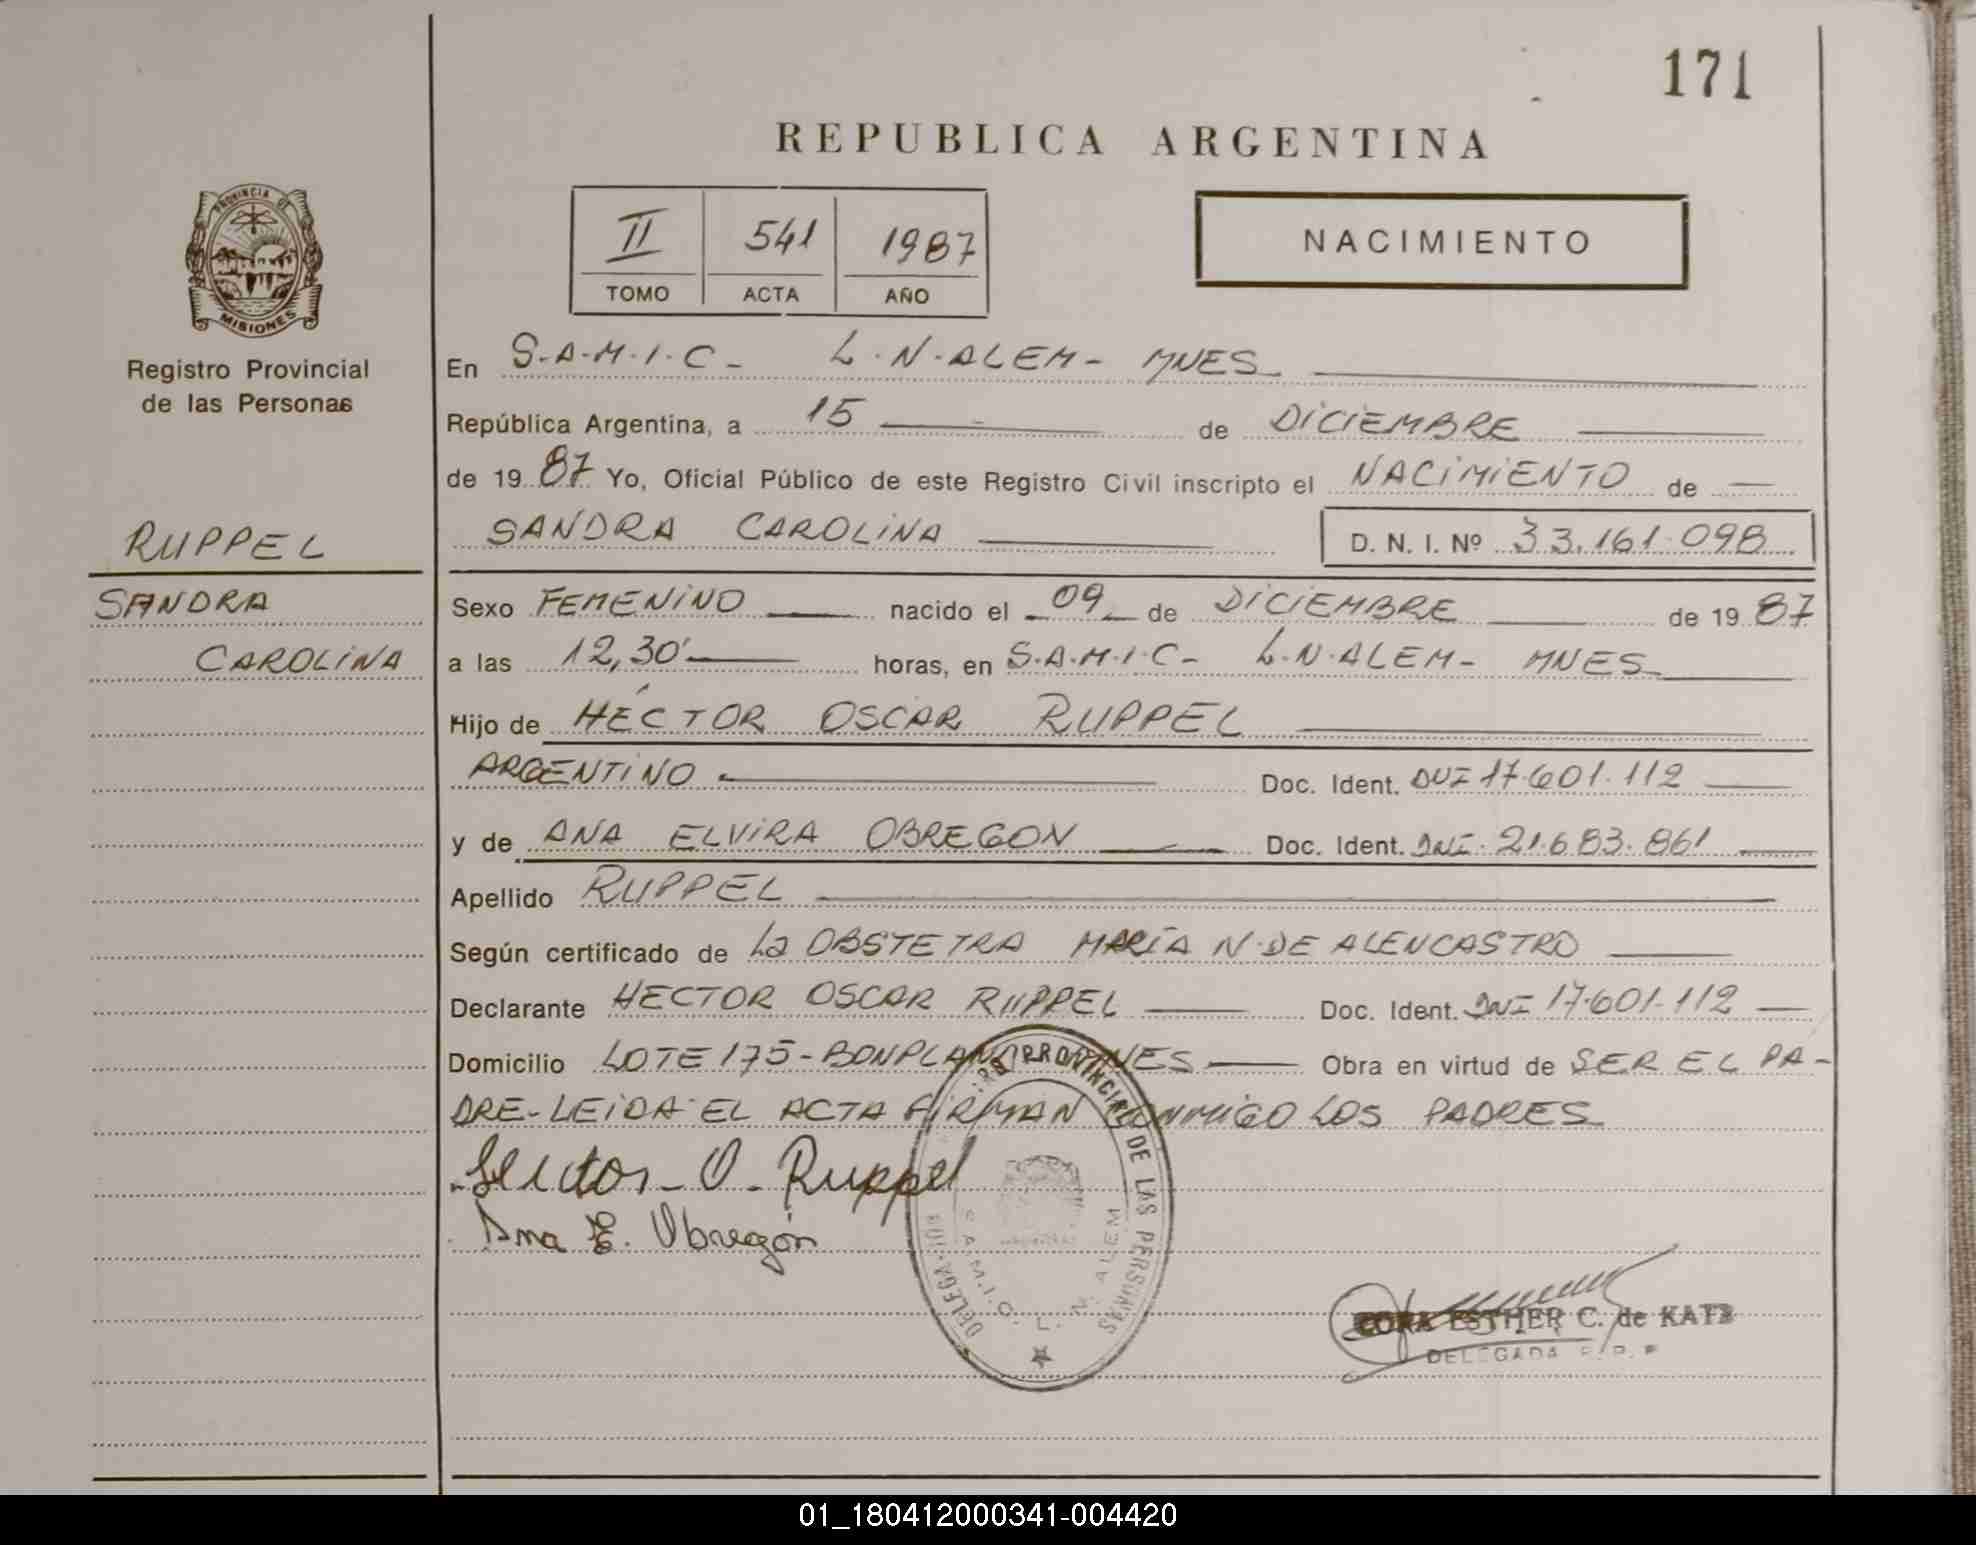 171
REPUBLICA ARGENTINA
PROVINCIA DE
MISIONES
Registro Provincial
de las Personas
II 541 1987
TOMO ACTA AÑO
NACIMIENTO
En S.A.M.I.C- L.N.ALEM- MNES
República Argentina, a 15 de DICIEMBRE
de 19 87 Yo, Oficial Público de este Registro Civil inscripto el NACIMIENTO de
RUPPEL
SANDRA CAROLINA D. N. I. Nº 33.161.098
SANDRA
Sexo FEMENINO nacido el 09 de DICIEMBRE de 19 87
CAROLINA
a las 12,30' horas, en S.A.M.I.C- L.N.ALEM- MNES
Hijo de HÉCTOR OSCAR RUPPEL
ARGENTINO Doc. Ident. DNI 17.601.112
y de ANA ELVIRA OBREGON Doc. Ident. DNI. 21.683.861
Apellido RUPPEL
Según certificado de La OBSTETRA MARÍA N. DE ALENCASTRO
Declarante HECTOR OSCAR RUPPEL Doc. Ident. DNI 17.601.112
Domicilio LOTE 175-BONPLAND MNES Obra en virtud de SER EL PA-
DRE-LEIDA EL ACTA FIRMAN CONMIGO LOS PADRES
Hector-O-Ruppel
Ana E. Obregón
PROVINCIAL DE LAS PERSONAS
S.A.M.I.C. L. N. ALEM
CORA ESTHER C. de KATZ
DELEGADA
01_180412000341-004420